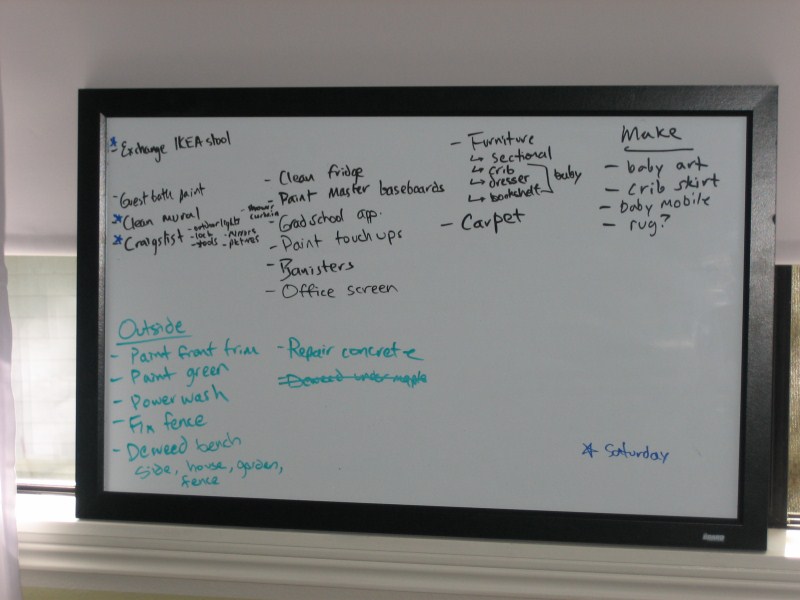 * Exchange IKEA stool
- Guest bath paint
* Clean mural
* Craigslist
- outdoor lights
- lock - mirrors
- tools - pictures
- shower curtain
- Clean fridge
- Paint Master baseboards
- Grad school app.
- Paint touch ups
- Banisters
- Office screen
- Furniture
↳ sectional
↳ crib
↳ dresser
↳ bookshelf
baby
- Carpet
Make
- baby art
- crib skirt
- baby mobile
- rug?
Outside
- Paint front trim
- Paint green
- Power wash
- Fix fence
- Deweed bench
side, house, garden,
fence
- Repair concrete
- Deweed under maple
* Saturday